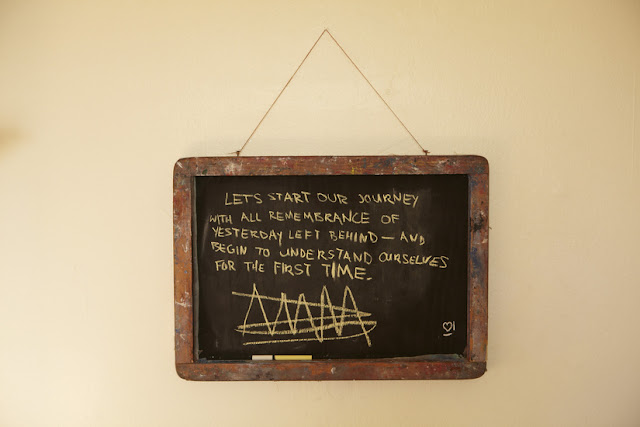 LETS START OUR JOURNEY
WITH ALL REMEMBRANCE OF
YESTERDAY LEFT BEHIND — AND
BEGIN TO UNDERSTAND OURSELVES
FOR THE FIRST TIME.